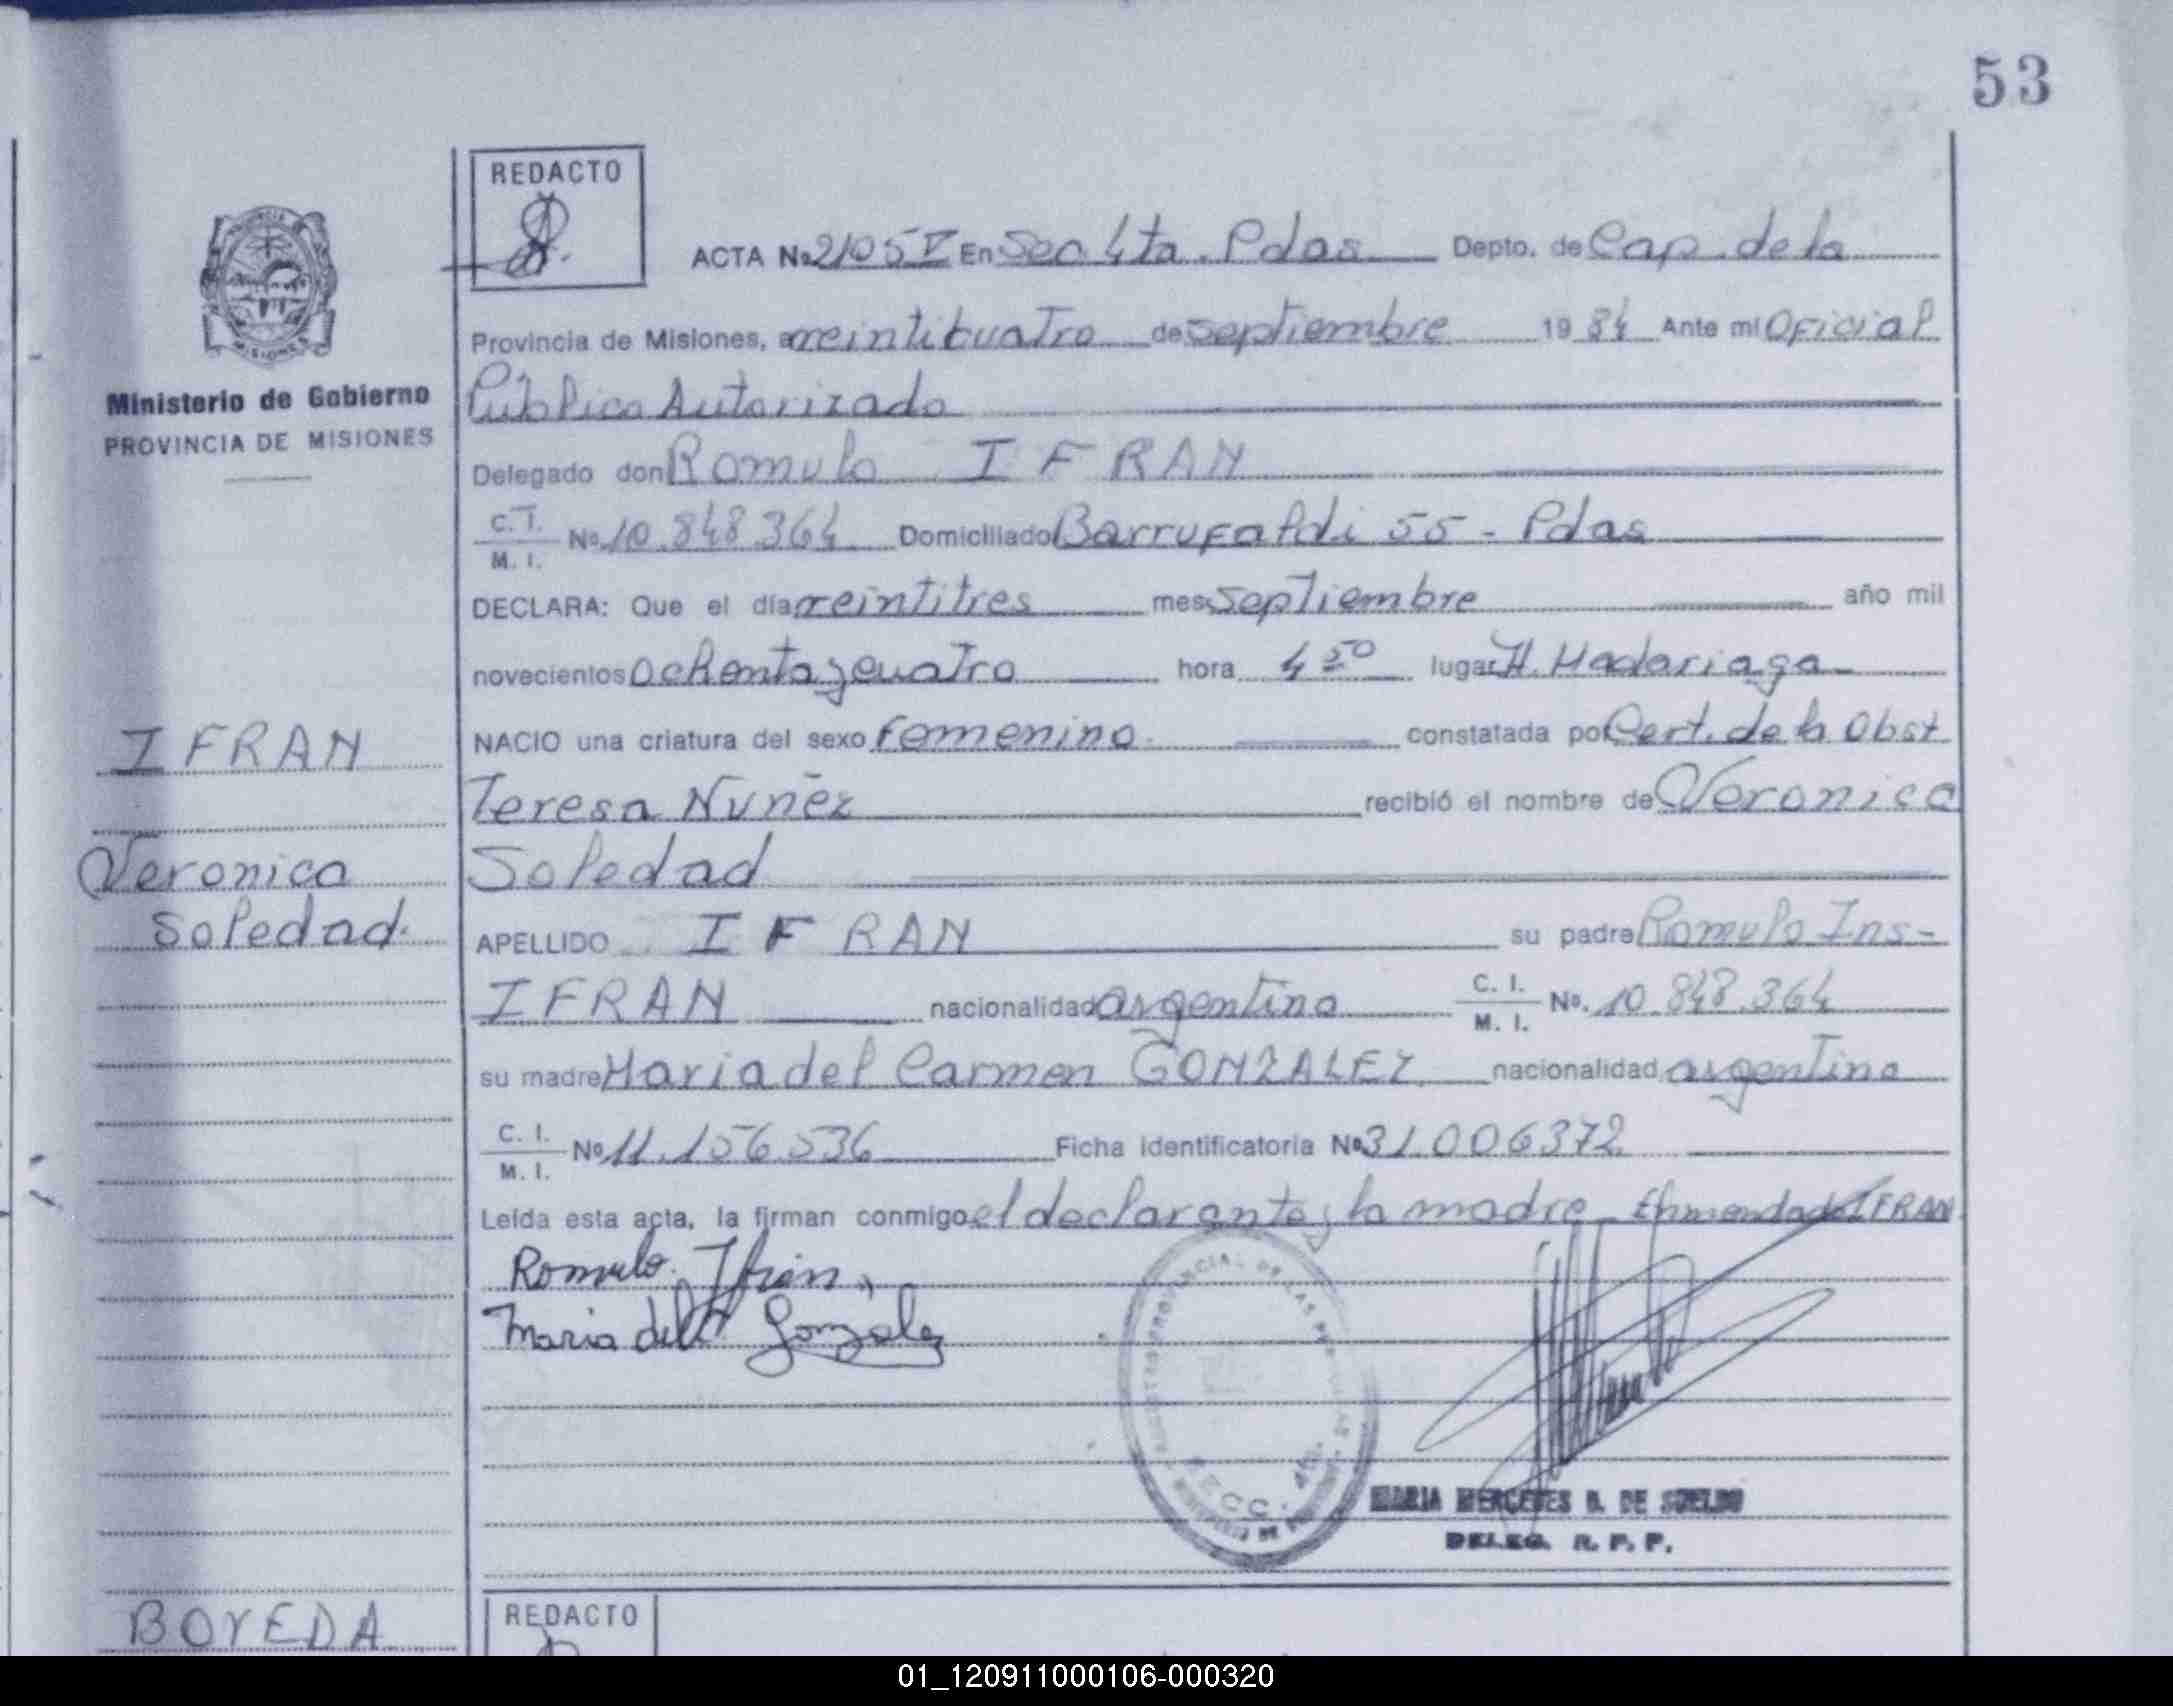 53
REDACTO
ACTA No 2105 V En Sec 4ta. Pdas Depto. de Cap. de la
Provincia de Misiones, a veinticuatro de septiembre 19 84 Ante mi Oficial
Ministerio de Gobierno
Público Autorizado
PROVINCIA DE MISIONES
Delegado don Romulo IFRAN
C. I. / M. I. No. 10.848.364 Domiciliado Barrufaldi 55 - Pdas
DECLARA: Que el día veintitres mes septiembre año mil
novecientos ochenta y cuatro hora 4 50 lugar H. Madariaga
IFRAN
NACIO una criatura del sexo femenino constatada por Cert. de la Obst
Teresa Nuñez recibió el nombre de Veronica
Veronica
Soledad
Soledad.
APELLIDO IFRAN su padre Romulo Ins-
IFRAN nacionalidad argentina C. I. / M. I. No. 10.848.364
su madre Maria del Carmen GONZALEZ nacionalidad argentina
C. I. / M. I. No 11.156.536 Ficha identificatoria No 31.006372
Leída esta acta, la firman conmigo el declarante y la madre - Enmendado IFRAN
Romulo Ifran
Maria del C Gonzalez
MARIA MERCEDES B. DE SUELDO
DELEG. R. P. P.
BOVEDA
REDACTO
01_120911000106-000320